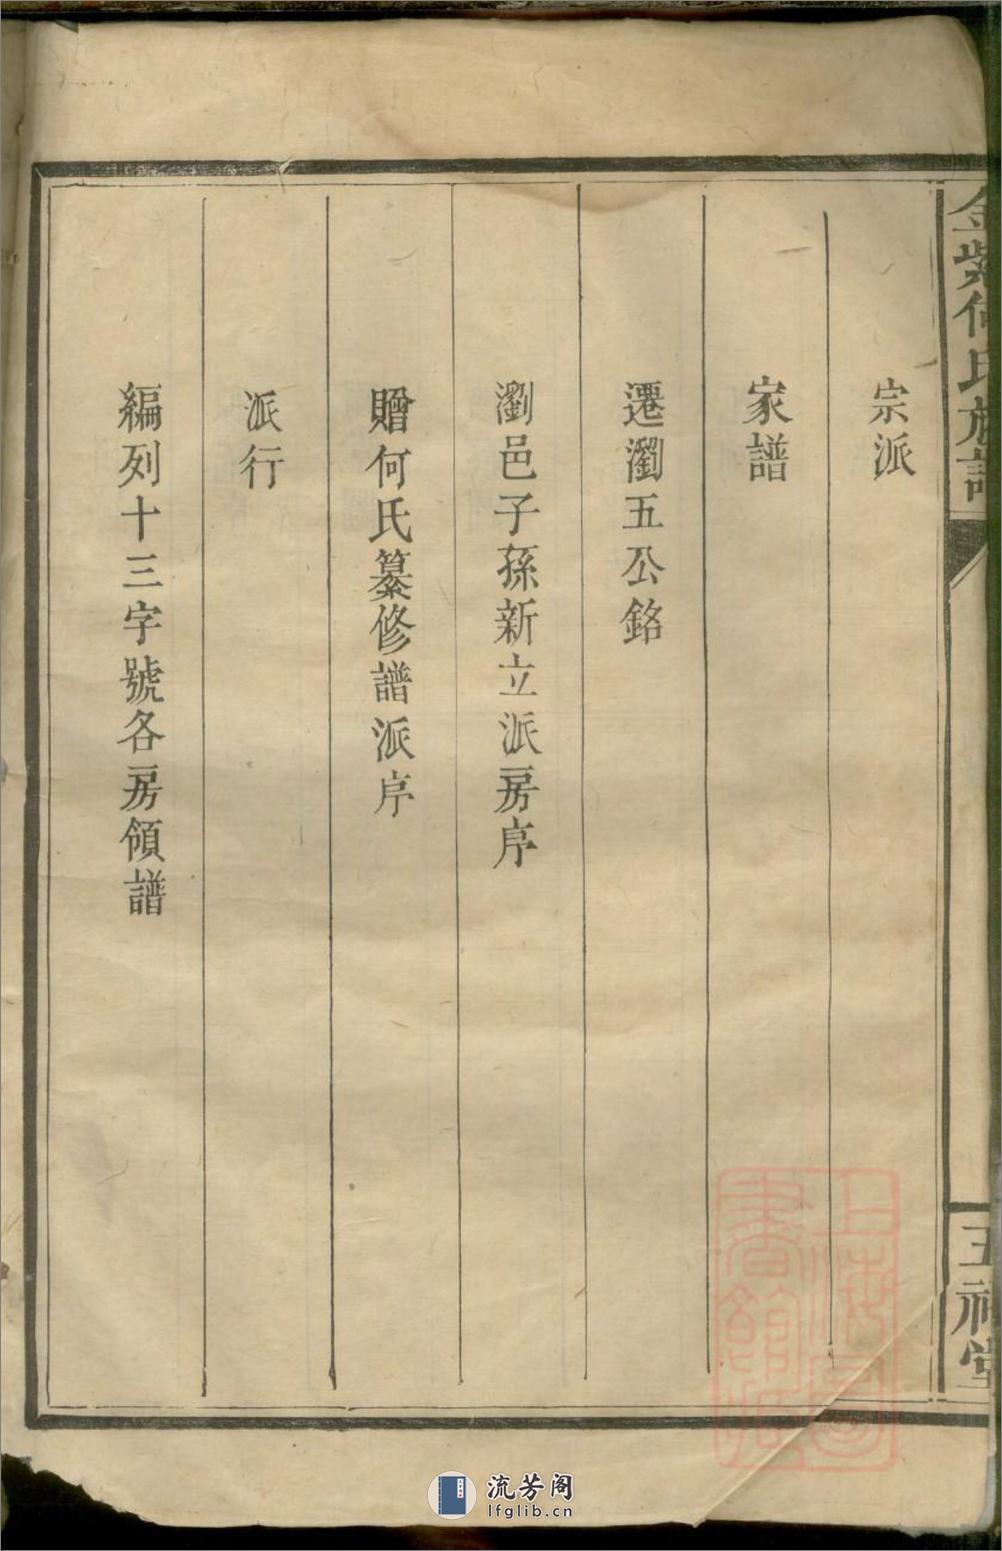 金紫何氏族譜
五福堂
宗派
家譜
遷瀏五公銘
瀏邑子孫新立派房序
贈何氏纂修譜派序
派行
編列十三字號各房領譜
上海圖書館藏
流芳阁
lfglib.cn